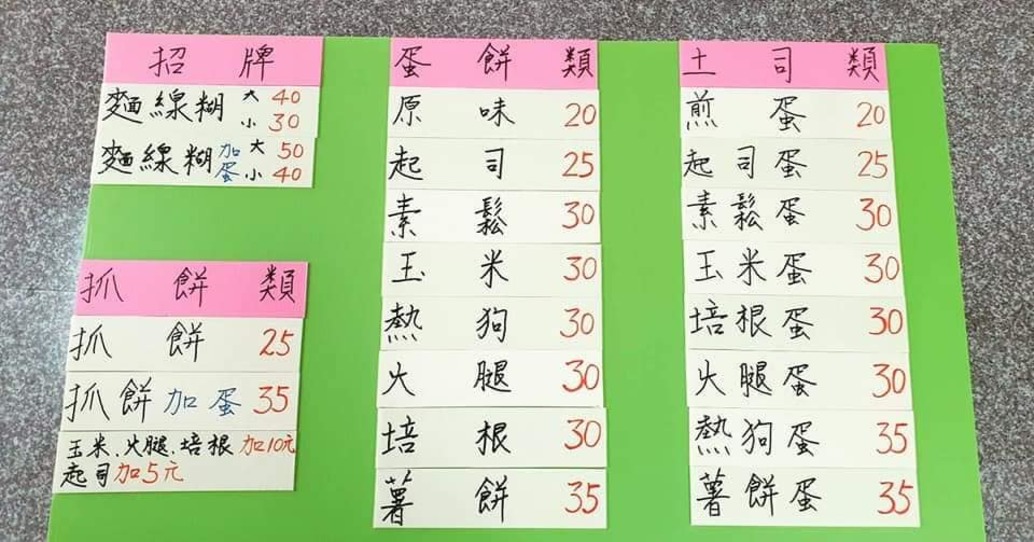 招牌
麵線糊 大 40
小 30
麵線糊 加蛋 大 50
小 40
抓餅類
抓餅 25
抓餅加蛋 35
玉米.火腿.培根 加10元
起司加5元
蛋餅類
原味 20
起司 25
素鬆 30
玉米 30
熱狗 30
火腿 30
培根 30
薯餅 35
土司類
煎蛋 20
起司蛋 25
素鬆蛋 30
玉米蛋 30
培根蛋 30
火腿蛋 30
熱狗蛋 35
薯餅蛋 35